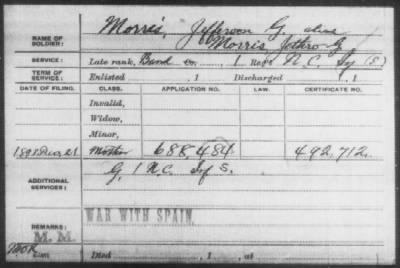 NAME OF SOLDIER: Morris, Jefferson G. alias
Morris, Jethro G
SERVICE: Late rank, Band Co. 1 Reg't N.C. Inf (S)
TERM OF SERVICE: Enlisted , 1 Discharged , 1
DATE OF FILING. CLASS. APPLICATION NO. LAW. CERTIFICATE NO.
Invalid,
Widow,
Minor,
Mother 688,484 492,712.
ADDITIONAL SERVICES: G, 1 N.C. Inf S.
WAR WITH SPAIN.
REMARKS:
M. M.
Died , 1 , at